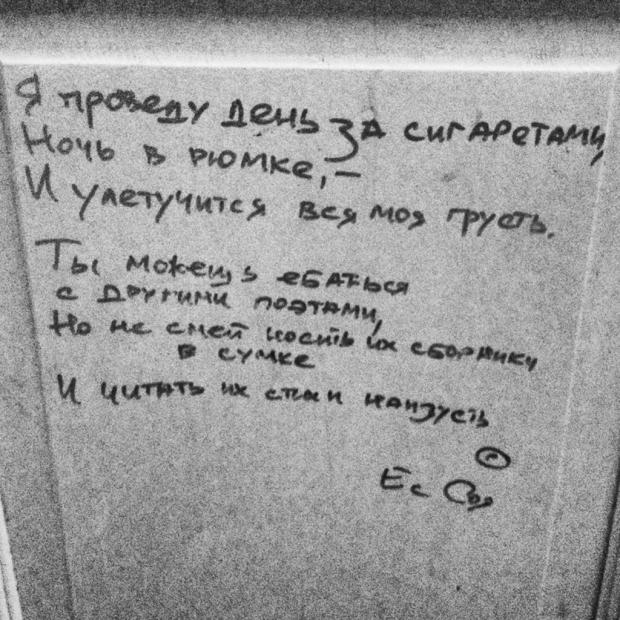 Я проведу день за сигаретами,
Ночь в рюмке, –
И улетучится вся моя грусть.
Ты можешь ебаться
с другими поэтами,
Но не смей носить их сборники
в сумке
И читать их стихи наизусть
©
Ес